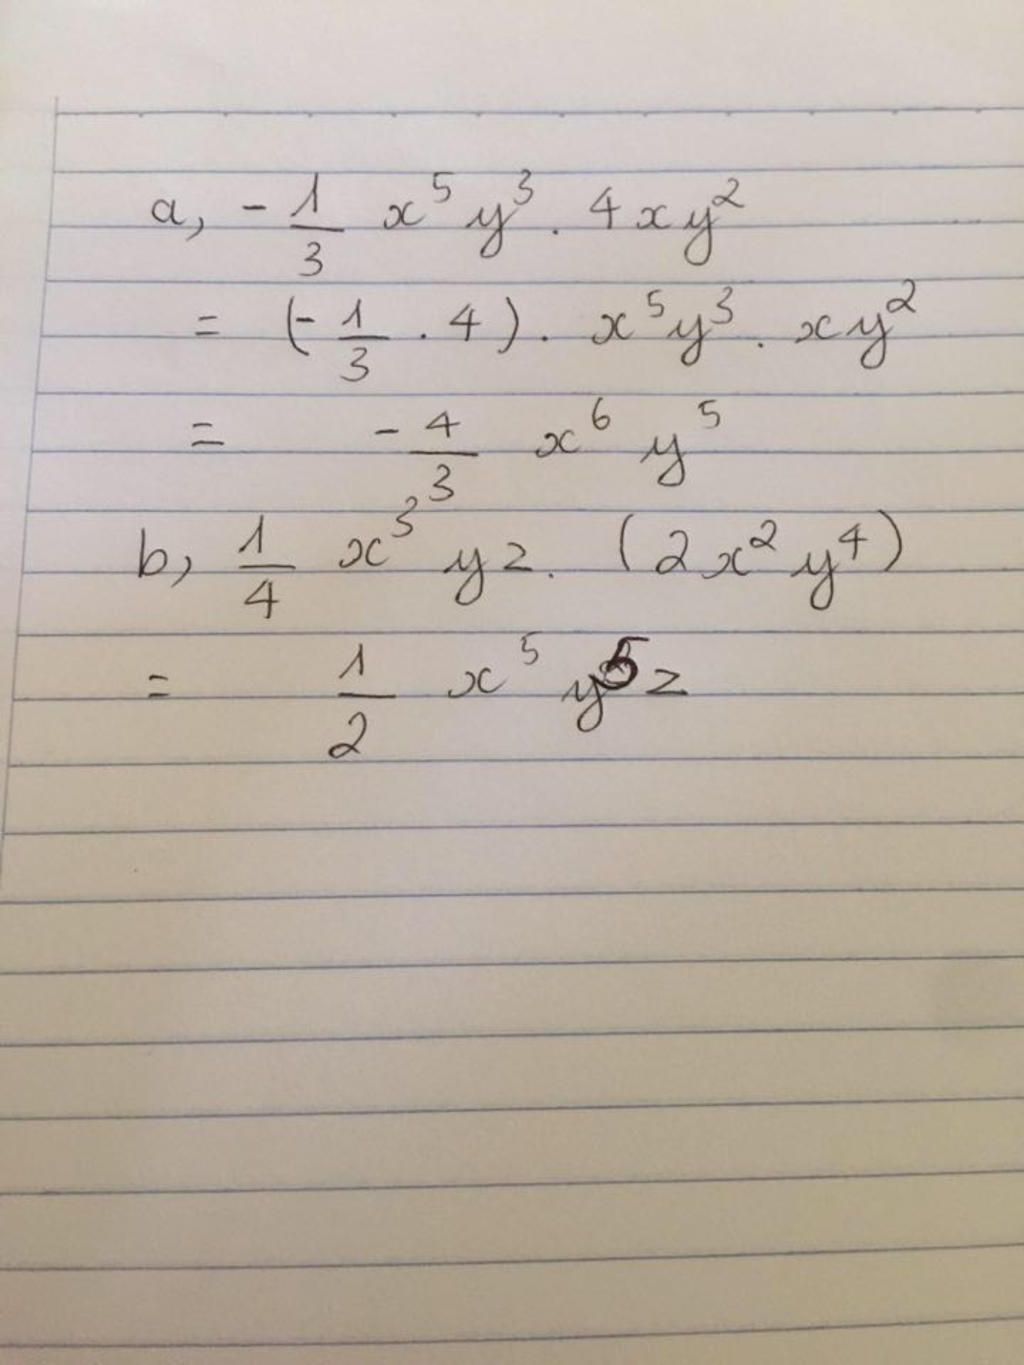 a, -1/3 x⁵ y³ . 4xy²
= (-1/3 . 4) . x⁵y³ . xy²
= -4/3 x⁶ y⁵
b, 1/4 x³ yz. (2x² y⁴)
= 1/2 x⁵ y⁵ z